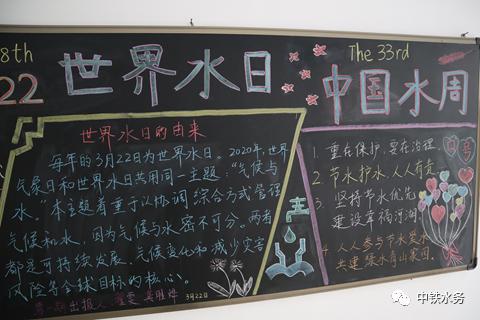 8th
22 世界水日
世界水日的由来
每年的3月22日为世界水日。2020年世界
气象日和世界水日共用同一主题："气候与
水。"本主题着重于以协调、综合方式管理
气候和水,因为气候与水密不可分。两者
都是可持续发展、气候变化和减少灾害
风险等全球目标的核心。
出报人
3月22日
The 33rd
中国水周
1. 重在保护,要在治理
2. 节水护水,人人有责
3. 坚持节水优先
建设幸福河湖
4. 人人参与节水爱水
共建绿水青山家园。
中铁水务